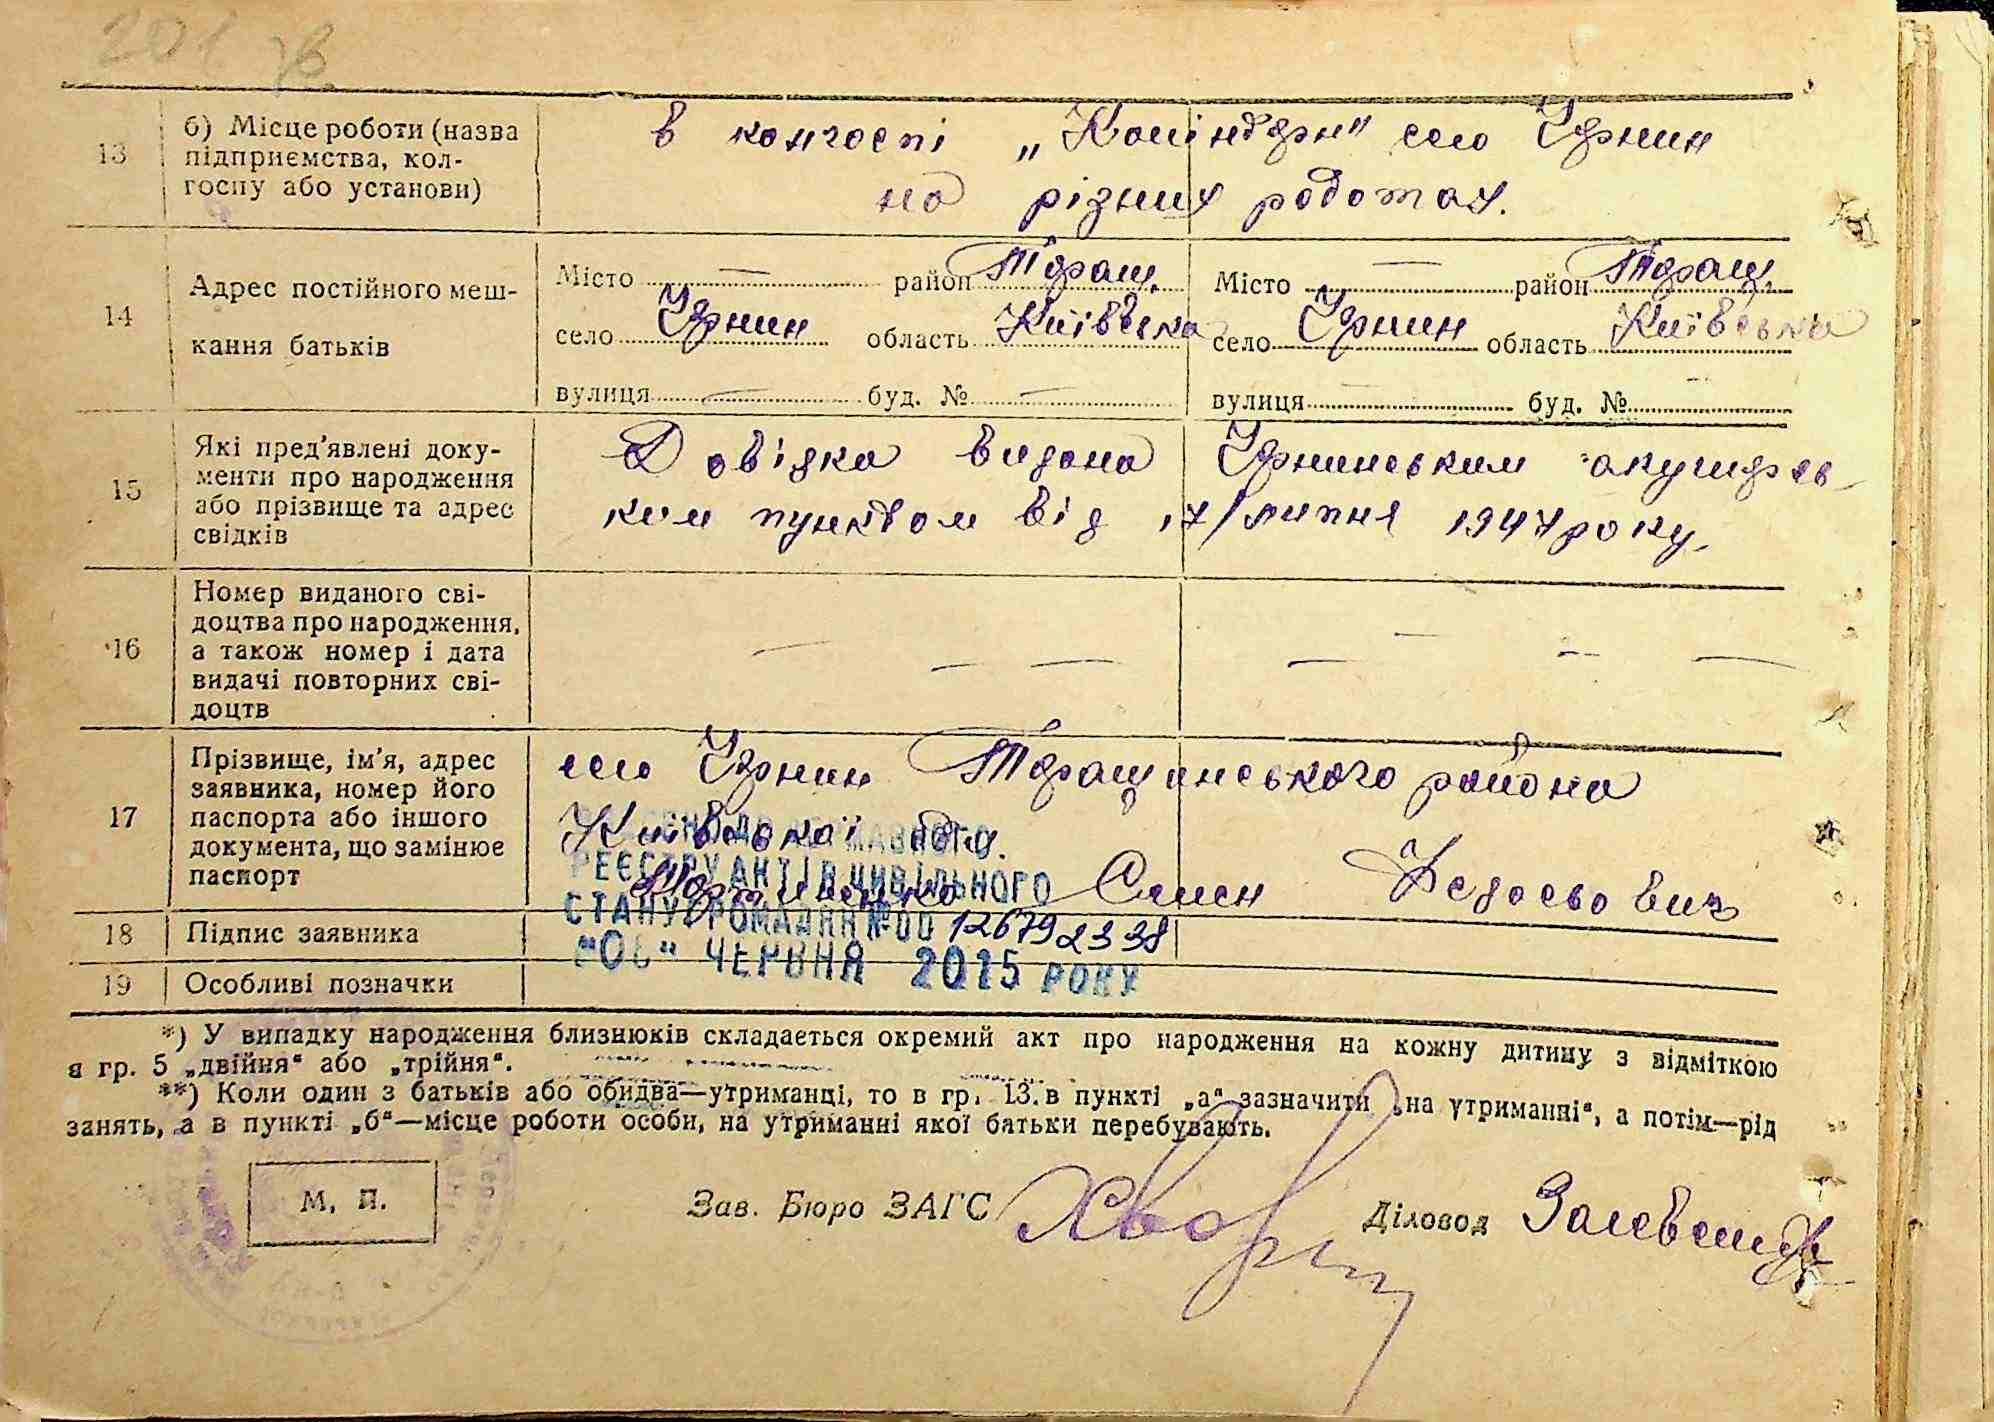 201 зв
13
б) Місце роботи (назва
підприємства, кол-
госпу або установи)
в колгоспі „Комінтерн" село Іржин
на різних роботах.
14
Адрес постійного меш-
кання батьків
Місто — район Таращ.
село область Київська
вулиця — буд. № —
Місто — район Таращ.
село область Київська
вулиця буд. №
15
Які пред'явлені доку-
менти про народження
або прізвище та адрес
свідків
Довідка видана акушерсь-
ким пунктом від 17/липня 1947 року.
16
Номер виданого сві-
доцтва про народження,
а також номер і дата
видачі повторних сві-
доцтв
— — — — — — —
17
Прізвище, ім'я, адрес
заявника, номер його
паспорта або іншого
документа, що замінює
паспорт
село Таращанського района
Київської обл.
Семен Федосьович
ДЕРЖАВНОГО
РЕЄСТРУ АКТІВ ЦИВІЛЬНОГО
СТАНУ ГРОМАДЯН №00 126792338
ЧЕРВНЯ 2015 РОКУ
18
Підпис заявника
19
Особливі позначки
*) У випадку народження близнюків складається окремий акт про народження на кожну дитину з відміткою
в гр. 5 „двійня“ або „трійня“.
**) Коли один з батьків або обидва—утриманці, то в гр. 13. в пункті „а“ зазначити „на утриманні“, а потім—рід
занять, а в пункті „б“—місце роботи особи, на утриманні якої батьки перебувають.
М. П.
Зав. Бюро ЗАГС
Діловод